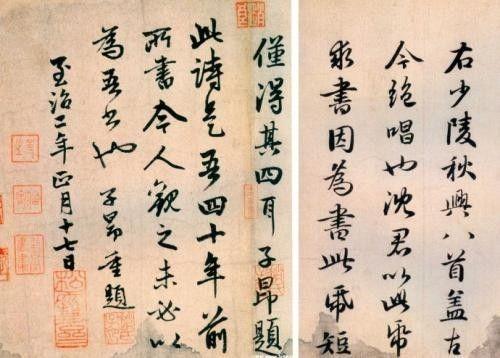 右少陵秋興八首盖古
今絶唱也沈君以此帋
求書因為書此帋短
僅得其四耳子昂題
此詩是吾四十年前
所書今人觀之未必以
為吾書也 子昂重題
至治二年正月十七日
松雪齋